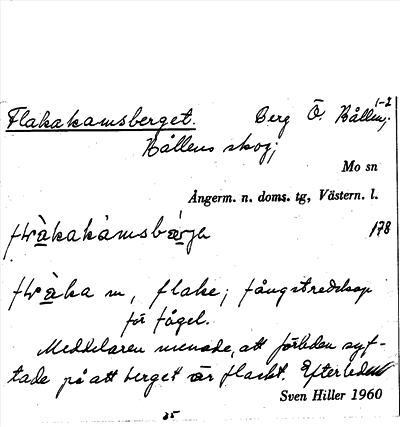 Flakakamsberget. Berg Ö. Bållen, 1-2
Bållens skog;
Mo sn
Ångerm. n. doms. tg, Västern. l.
178
m, flake; fångstredskap
för fågel.
Meddelaren menade, att förleden syf-
tade på att berget är flackt. Efterleden
Sven Hiller 1960
25